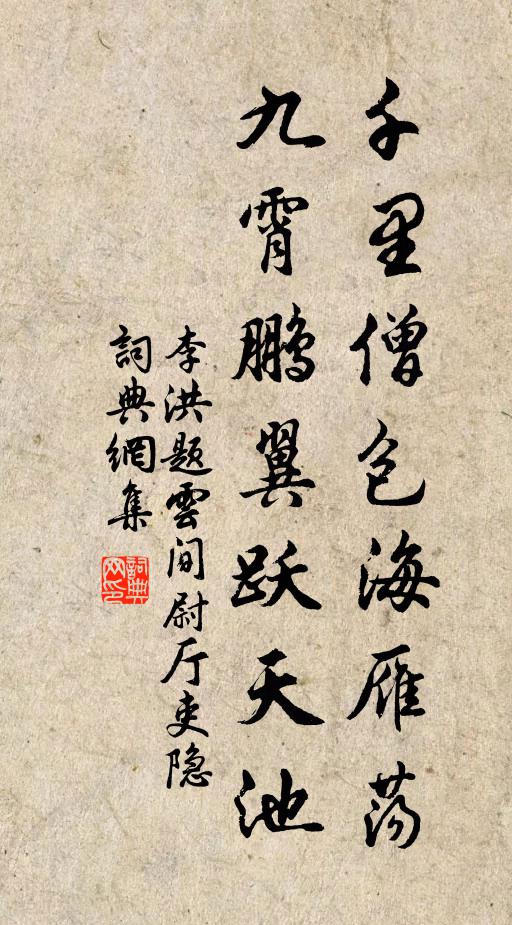 千里僧包海雁荡
九霄鹏翼跃天池
李洪题雲间尉厅吏隐
詞典網集
詞典网印